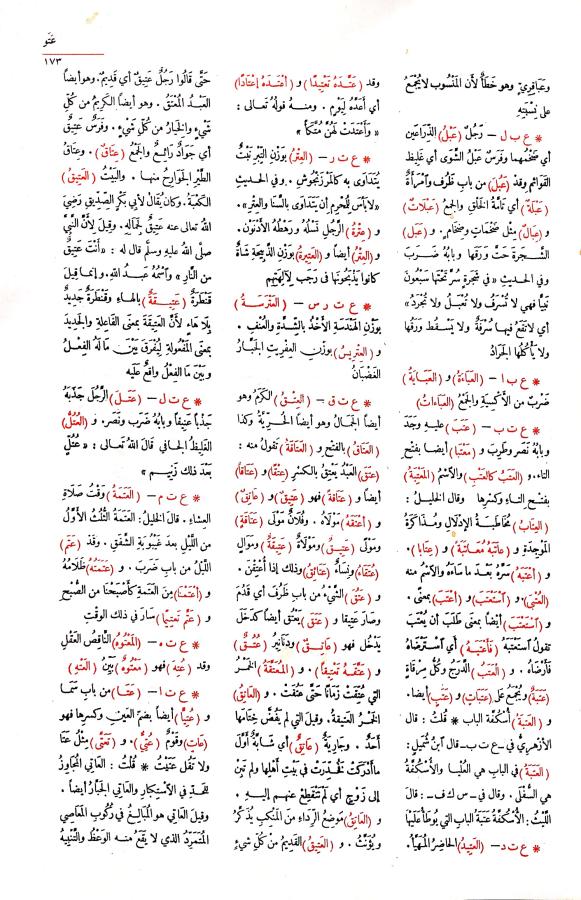 عَتَو
١٧٣
وعَبَاقِرِيّ. وهو خَطَأٌ لأن المَنْسوب لا يُجْمَعُ
على نِسْبَتِه
* ع ب ل – رَجُلٌ (عَبْلُ) الذِّرَاعَين
أي ضَخْمُهما وفَرَس عَبْلُ الشَّوَى أي غَلِيظ
القَوائمِ وقد (عَبُلَ) من باب ظَرُف وامْرأةٌ
(عَبْلَة) أي تامَّةُ الخَلْقِ والجمعُ (عَبْلات)
و (عِبَالٌ) مِثْل ضَخْمَاتٍ وضِخَام. و (عَبَل)
الشَّجَرةَ حَتَّ وَرَقَها وبابُه ضَرَبَ
وفي الحديث « في شجَرةٍ سُرَّ تَحْتَها سَبْعُون
نَبِيًّا فهي لا تُسْرَفُ ولا تُعْبَلُ ولا تُجْرَدُ »
أي لا تَقَعُ فيها سُرْفَةٌ ولا يَسْقُط وَرَقُها
ولا يَأْكُلُها الجَرَادُ
* ع ب ا – (العَبَاءَةُ) و (العَبَايَةُ)
ضَرْبٌ من الأكْسِيَةِ والجَمْعُ (العَبَاءَاتُ)
* ع ت ب – (عَتَبَ) عليـه وَجَدَ
وبابُه نَصَر وطَرِبَ و (مَعْتَبًا) أيضا بفتح
التاء. و (العَتْبُ كالعَتَبِ) والاسْمُ (المَعْتَبة)
بفتـح التـاءِ وكسرِها وقال الخليلُ :
(العِتابُ) مُخَاطَبـةُ الإدْلالِ ومُذاكَرَةُ
المَوْجِدَة و (عاتَبَه مُعـاتَبـةً) و (عِتابا).
و (أعْتَبَه) سَرَّهُ بَعْدَ ما سَاءَهُ والاسْمُ منه
(العُتْبَى). و (اسْتَعْتَبَ) و (أَعْتَبَ) بمعنًى.
و (اسْتَعْتَبَ) أيْضًا بمعنى طلَبَ أن يُعْتَبَ
تقولُ اسْتَعْتَبَه (فأعْتَبَهُ) أي اسْتَرْضَاهُ
فأَرْضَاه . و (العَتَبُ) الدَّرَجُ وكلُّ مِرْقَاةٍ
(عَتَبَةٌ) ويُجْمَعُ على (عَتَبات) و (عَتَبٍ) أيضا.
و (العَتَبةُ) أُسْكُفَّة الباب * قُلْتُ : قال
الأزهريُّ في – ع ت ب – قال ابنُ شُمَيْلٍ :
(العَتَبَةُ) في البابِ هي العُلْيا والأُسْكُفَّةُ
هي السُّفْلَى. وقال في – س ك ف – : قالَ
اللَّيثُ : الأُسْكُفَّة عَتَبَةُ البابِ التي يُوطَأُ علَيْها
* ع ت د – (العَتِيدُ) الحاضِرُ المُهَيَّأ.
وقد (عَتَّـدَهُ تَعْتِيـدًا) و (أعْتَـدَهُ إعْتادًا)
أي أعَدَّه ليَوْم . ومنـهُ قولُه تعـالى :
« وأَعْتَدَتْ لَهُنَّ مُتَّكَأً »
* ع ت ر – (العِتْرُ) بوَزْنِ التِّبْرِ نَبْتٌ
يُتَداوَى به كالمَرْزَنْجُوشِ . وفي الحديث
« لا بَأْسَ للْمُحْرِمِ أن يَتَدَاوَى بالسَّنَا والعِتْرِ ».
و (عِتْرَةُ) الرَّجُلِ نَسْلُهُ ورَهْطُهُ الأَدْنَوْن .
و (العِتْرُ) أيضًا و (العَتِيرةُ) بوَزْنِ الذَّبِيحةِ شاةٌ
كانوا يَذْبَحُونَها في رَجَب لِآلِهَتِهِم
* ع ت ر س – (العَتْرَسَةُ)
بوَزْنِ الهَنْدَسَة الأَخْذُ بالشِّدَّةِ والعُنْفِ .
و (العِتْرِيسُ) بوَزْنِ العِفْرِيتِ الجَبَّـارُ
الغَضْبانُ
* ع ت ق – (العِتْقُ) الكَرَمُ وهو
أيضًا الجَمَالُ وهو أيضًا الحُـرِّيَّةُ وكذا
(العَتَاقُ) بالفَتْح و (العَتَاقَةُ) تَقُولُ منه :
(عَتَقَ) العَبْدُ يَعْتِقُ بالكَسْرِ (عِتْقًا) و (عَتَاقًا)
أيضًا و (عَتَاقَة) فهو (عَتِيقٌ) و (عاتِقٌ)
و (أعْتَقَهُ) مَوْلَاهُ . وفُلانٌ مَوْلَى (عَتَاقَةٍ)
ومَوْلًى (عَتِيـقٌ) ومَوْلاةٌ (عَتِيقَةٌ) ومَوَالٍ
(عُتَقَاءُ) ونِسَاءٌ (عَتائِقُ) وذلك إذا أُعْتِقْنَ .
و (عَتُقَ) الشَّيْءُ من بابِ ظَرُف أي قَدُمَ
وصَارَ عتِيقًا و (عَتَقَ) يَعْتُقُ أيضًا كدَخَلَ
يَدْخُل فهو (عاتِـقٌ) ودَنانِيرُ (عُتُـقٌ)
و (عَتَّقَـهُ تَعْتِيقًـا) . و (المُعَتَّقَةُ) الخَمْرُ
التي عُتِّقَت زَمَانًا حَتَّى عَتُقَتْ . و (العَاتِقُ)
الخَمْرُ العَتِيقـةُ. وقيلَ التي لم يَفُضَّ خِتَامَها
أحَدٌ . وجَارِيَةٌ (عاتِقٌ) أي شَابَّةٌ أوَّلَ
ما أدْرَكَتْ فَخُدِّرَتْ في بَيْتِ أهلِها ولم تَبِنْ
إلى زَوْجٍ أي لَم تَنْقَطِع عنهـم إليـهِ .
و (العاتِقُ) مَوْضِعُ الرِّداءِ منَ المَنْكِبِ يُذَكَّرُ
ويُؤَنَّثُ . و (العَتِيقُ) القَدِيمُ من كُلِّ شَيءٍ
حَتَّى قَالُوا رَجُلٌ عَتِيقٌ أي قَدِيمٌ. وهو أيضًا
العَبْـدُ المُعْتَقُ . وهو أيضا الكَرِيمُ مِن كُلِّ
شَيءٍ والخِيَارُ من كُلِّ شَيءٍ . وفَرَسٌ عَتِيقٌ
أي جَوَادٌ رائِعٌ والجَمْعُ (عِتَاقٌ) . وعِتاقُ
الطَّيْرِ الجَوَارِحُ منهـا . والبَيْتُ (العَتِيقُ)
الكَعْبَةُ. وكان يُقالُ لأبي بَكْرٍ الصِّدِّيق رَضِيَ
اللهُ تعالى عنه عَتِيقٌ لِجَمَالِه . وقيلَ لأنَّ النَّبِيَّ
صلَّى اللهُ عليهِ وسلَّم قال له : « أَنْتَ عَتِيقٌ
من النَّار » واسْمُـهُ عبدُ اللهِ. وإنما قيلَ
قَنْطَرَةٌ (عَتِيـقَةٌ) بالهـاء وقَنْطَرَةٌ جَدِيدٌ
بلَا هَاء لأَنَّ العَتيقَةَ بمعنَى الفَاعِلة والجَدِيدَ
بمعنى المَفْعُولةِ لِيُفْرَقَ بَيْنَ مَا لَهُ الفِعْلُ
وبَيْنَ مَا الفِعْلُ واقِعٌ عَليه
* ع ت ل – (عَتَـلَ) الرَّجُلَ جَذَبَهُ
جَذْبًا عَنِيفًا وبابُهُ ضَرَب ونَصَر. و (العُتُلُّ)
الغَلِيظُ الجَافي قالَ اللهُ تعـالى : « عُتُلٍّ
بَعْدَ ذلك زَنِيمٍ »
* ع ت م – (العَتَمَةُ) وَقْتُ صَلَاةِ
العِشَاءِ. قالَ الخليلُ: العَتَمةُ الثُّلُثُ الأَوَّلُ
من اللَّيلِ بعدَ غَيْبُوبةِ الشَّفَقِ . وقَد (عَتَمَ)
اللَّيْلُ من بابِ ضَرَبَ . و (عَتَمَتُهُ) ظَلامُهُ
و (أَعْتَمْنا) مِنَ العَتَمةِ كأصْبَحْنا مِنَ الصُّبْحِ
و (عَتَّمَ تَعْتِيمًا) سَارَ في ذلك الوَقْتِ
* ع ت ه – (المَعْتُوهُ) النَّاقِصُ العَقْلِ
وقد (عُتِهَ) فهو (مَعْتُوهٌ) بَيِّنُ (العَتَهِ)
* ع ت ا – (عَتَـا) من بَابِ سَمَا
و (عُتِيًّا) أيضًا بضَمِّ العَينِ وكَسْرِها فهو
(عَاتٍ) وقَوْمٌ (عُتِيٌّ). و (تَعَتَّى) مِثْلُ عَتَا
ولا تَقُل عَتَيْتُ * قُلْتُ : العاتي المُجَاوِزُ
للحَـدِّ في الاسْتِكْبَارِ والعاتي الجَبَّارُ أيضًا .
وقيلَ العاتي هو المُبَالِغُ في رُكُوبِ المَعاصِي
المُتَمَرِّدُ الذي لا يَقَعُ مِنـه الوَعْظُ والتَّنْبِيهُ